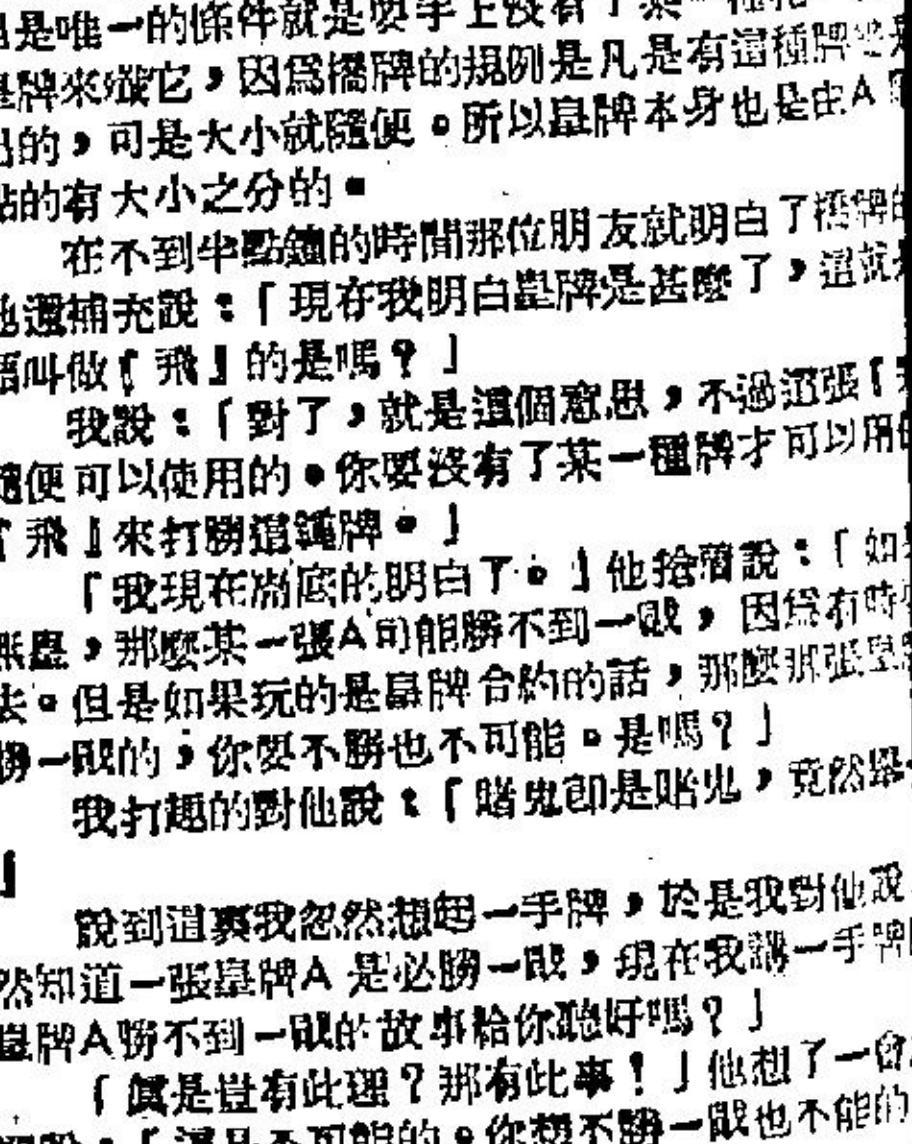 是唯一的條件就是要手上沒有了某一種
牌來殲它，因爲橋牌的規例是凡是有這種牌
的，可是大小就隨便。所以皇牌本身也是由A
的有大小之分的。
在不到半點鐘的時間那位朋友就明白了橋牌
他還補充說：「現在我明白皇牌是甚麼了，這就
叫做『飛』的是嗎？」
我說：「對了，就是這個意思，不過這張『
隨便可以使用的。你要沒有了某一種牌才可以用
『飛』來打勝這種牌。」
「我現在澈底的明白了。」他搶着說：「如
無皇，那麼某一張A可能勝不到一戙，因爲有時
去。但是如果玩的是皇牌合約的話，那麼那張皇
勝一戙的，你要不勝也不可能。是嗎？」
我打趣的對他說：「賭鬼即是賭鬼，竟然舉
」
說到這裏我忽然想起一手牌，於是我對他說
然知道一張皇牌A是必勝一戙，現在我講一手牌
皇牌A勝不到一戙的故事給你聽好嗎？」
「眞是豈有此理？那有此事！」他想了一會
：「這是不可能的。你想不勝一戙也不能的